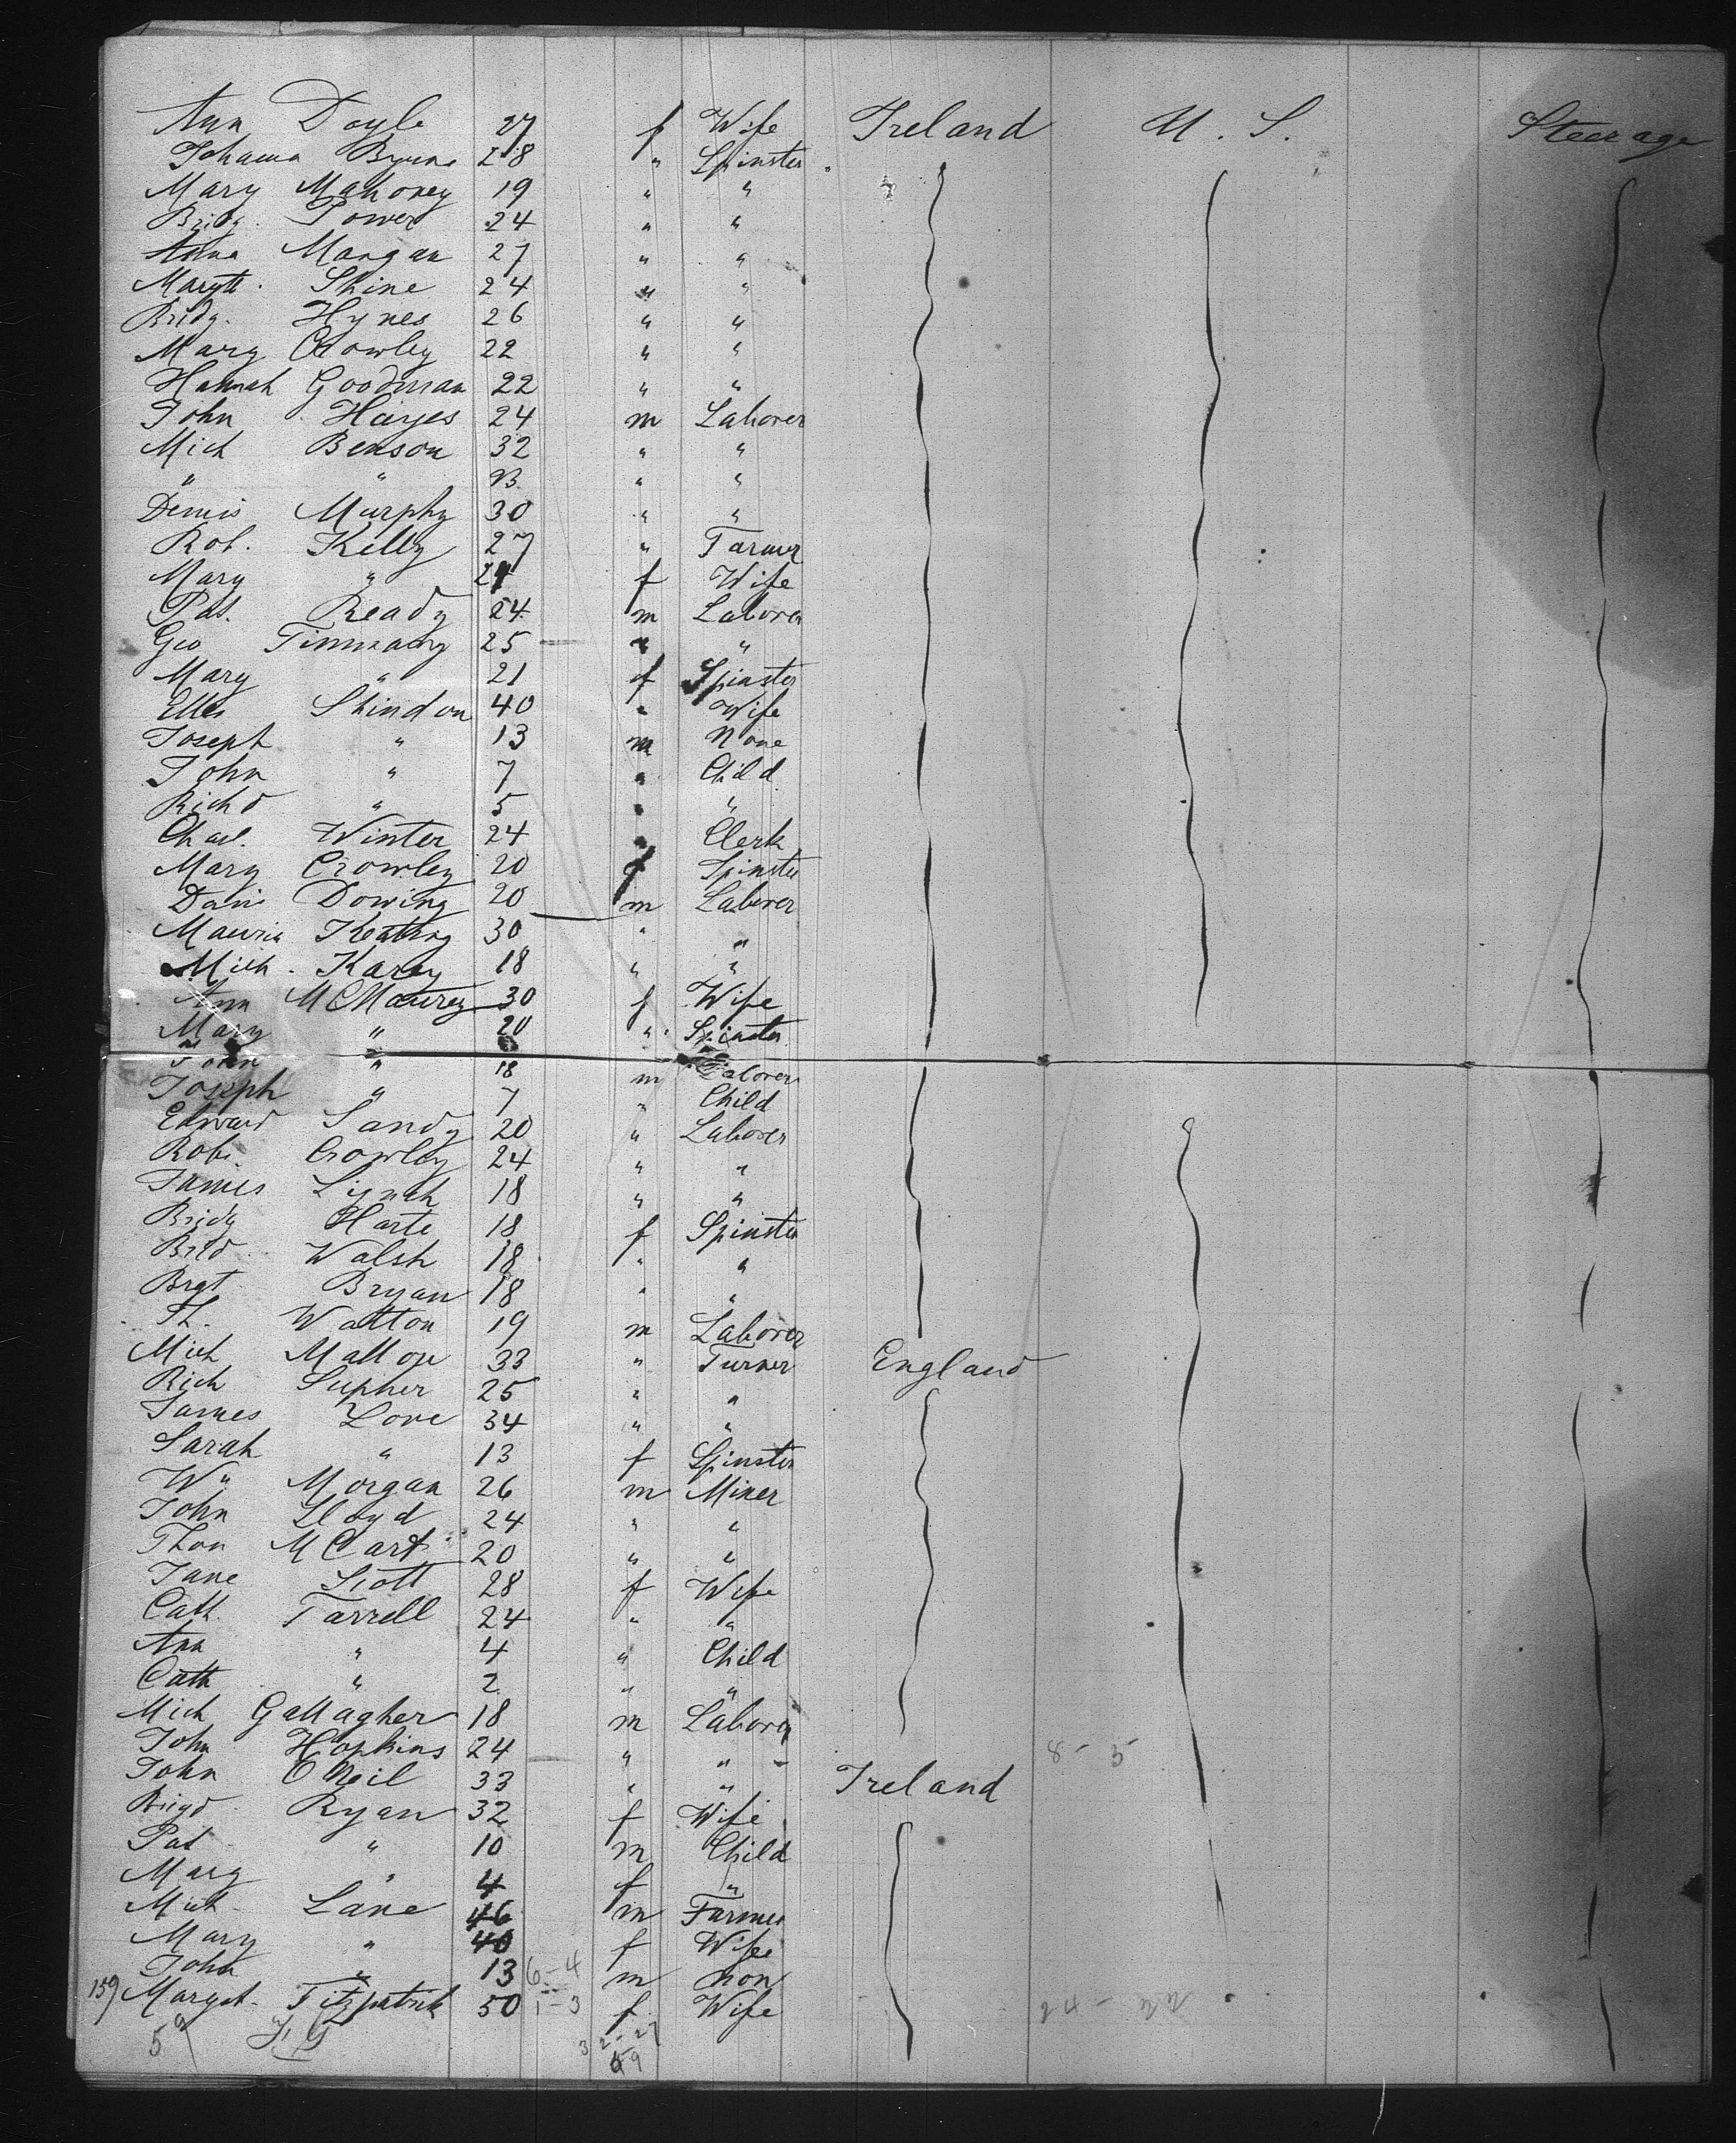 Ann Doyle 27 f Wife Ireland U. S. Steerage
Johanna Byrne 28 " Spinster
Mary Mahoney 19 " "
Bridg. Power 24 " "
Anna Mangan 27 " "
Margtt. Shine 24 " "
Bridg. Hynes 26 " "
Mary Crowley 22 " "
Hannah Goodman 22 " "
John Hayes 24 m Laborer
Mich Benson 32 " "
" " 23 " "
Denis Murphy 30 " "
Rob. Kelly 27 " Farmer
Mary " 24 f Wife
Pat. Ready 24 m Laborer
Geo 25 " "
Mary " 21 f Spinster
Ellen Shindon 40 " Wife
Joseph " 13 m None
John " 7 " Child
Richd " 5 " "
Chas. Winter 24 " Clerk
Mary Crowley 20 f Spinster
Danis Dowing 20 m Laborer
Mauric Keating 30 " "
Mich. Karey 18 " "
Ann 30 f Wife
Mary " 20 " Spinster
John " 18 m Laborer
Joseph " 7 " Child
Edward Sandy 20 " Laborer
Robt. Crowley 24 " "
James Lynch 18 " "
Bridg Harte 18 f Spinster
Brid. Walsh 18 " "
Brgt Bryan 18 " "
Th. Watton 19 m Laborer
Mich Mallope 33 " Turner England
Rich Supher 25 " "
James Love 34 " "
Sarah " 13 f Spinster
Wm Morgan 26 m Miner
John Lloyd 24 " "
Thon McCart 20 " "
Jane Scott 28 f Wife
Cath. Farrell 24 " "
Ann " 4 " Child
Cath " 2 " "
Mich Gallagher 18 m Laborer
John Hopkins 24 " " 8 - 5
John ONeil 33 " " Ireland
Brigd Ryan 32 f Wife
Pat " 10 m Child
Mary " 4 f "
Mich Lane 46 m Farmer
Mary " 40 f Wife
John " 13 6-4 m non
159 Margat. Fitzpatrick 50 1-3 f Wife
59 32-27
59